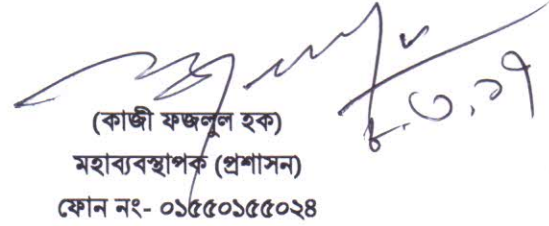 ৮.৩.১৭
(কাজী ফজলুল হক)
মহাব্যবস্থাপক (প্রশাসন)
ফোন নং- ০১৫৫০১৫৫০২৪